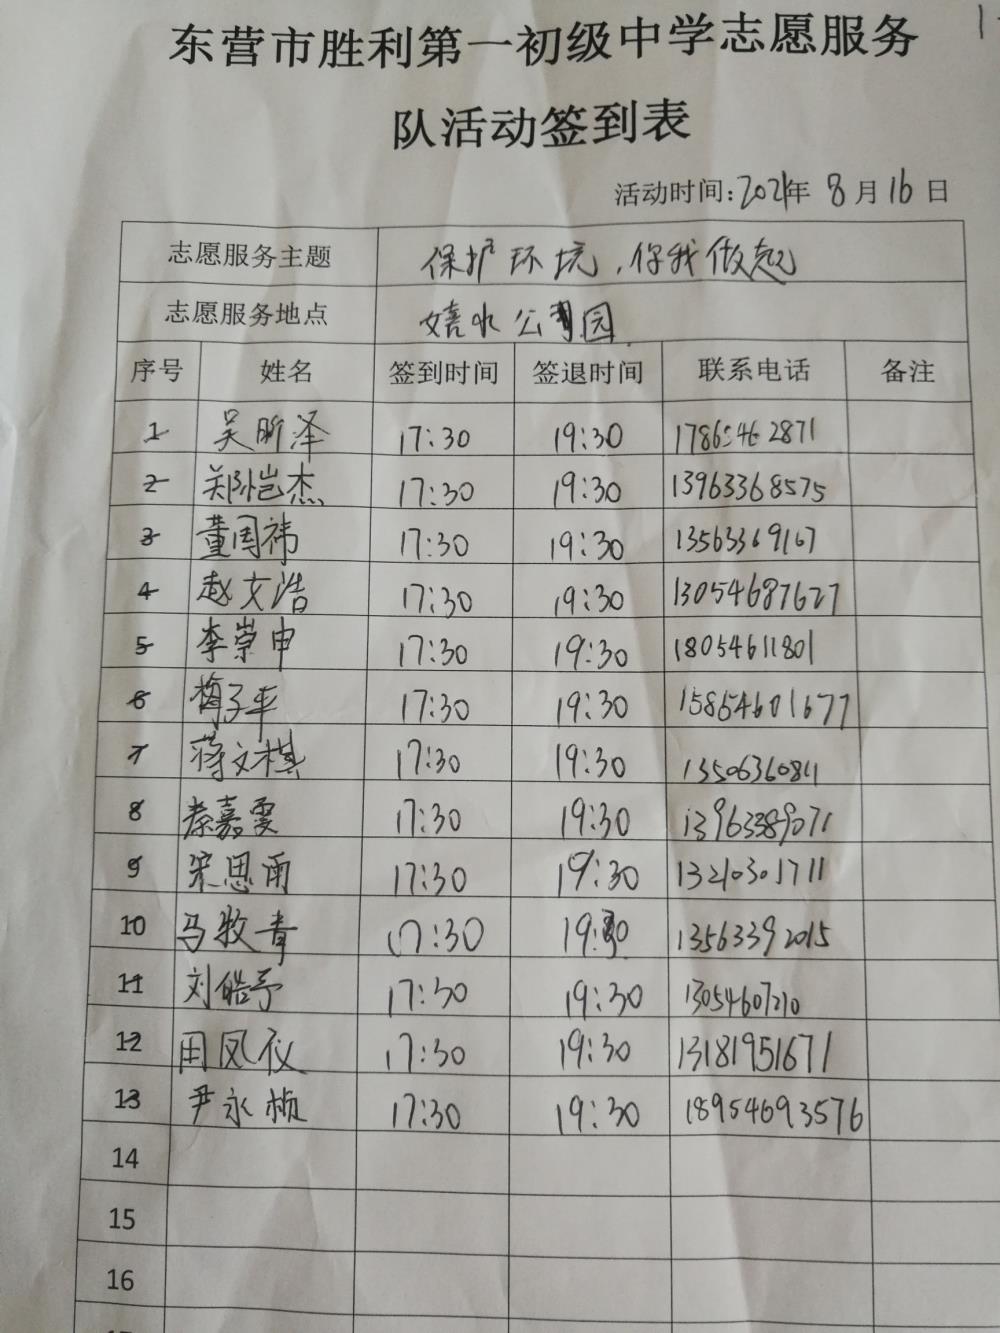 东营市胜利第一初级中学志愿服务
队活动签到表
活动时间:2021年 8月16日
志愿服务主题 保护环境,你我做起
志愿服务地点 嬉水公园
序号 姓名 签到时间 签退时间 联系电话 备注
1 吴昕泽 17:30 19:30 17865462871
2 郑恺杰 17:30 19:30 13963368575
3 董周祎 17:30 19:30 13563369167
4 赵文浩 17:30 19:30 13054687627
5 李崇申 17:30 19:30 18054611801
6 梅子平 17:30 19:30 15854601677
7 蒋文棋 17:30 19:30 13506360811
8 秦嘉雯 17:30 19:30 13963389071
9 宋思雨 17:30 19:30 13210301711
10 马牧青 17:30 19:30 13563392015
11 刘皓予 17:30 19:30 13054607210
12 田凤仪 17:30 19:30 13181951671
13 尹永桢 17:30 19:30 18954693576
14
15
16